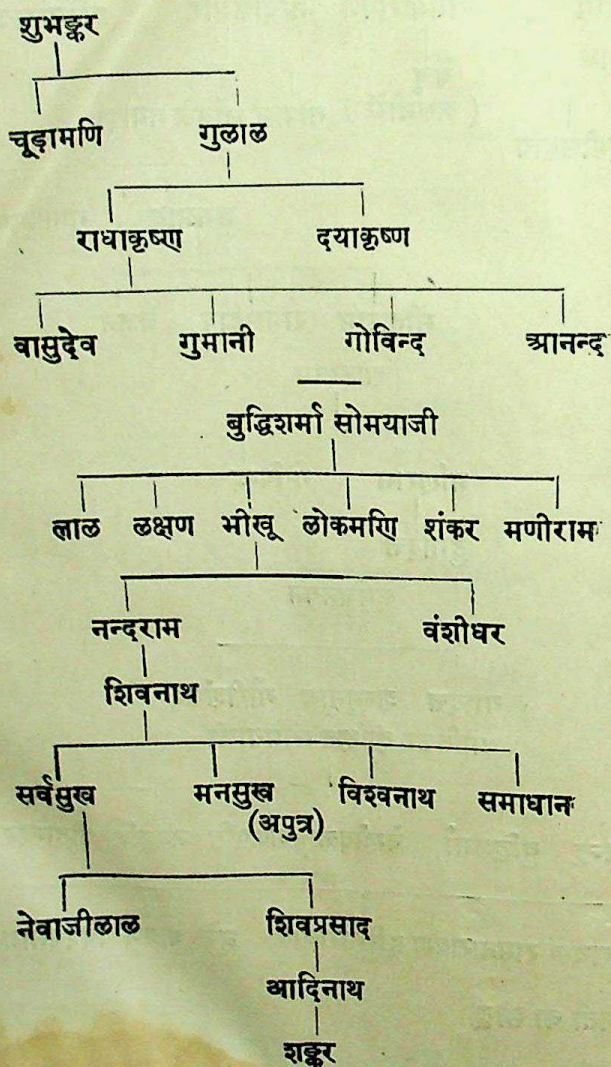 शुभङ्कर
चूड़ामणि गुलाल
राधाकृष्ण दयाकृष्ण
वासुदेव गुमानी गोविन्द आनन्द
बुद्धिशर्मा सोमयाजी
लाल लक्षण भीखू लोकमणि शंकर मणीराम
नन्दराम वंशीधर
शिवनाथ
सर्वसुख मनसुख विश्वनाथ समाधान
(अपुत्र)
नेवाजीलाल शिवप्रसाद
आदिनाथ
शङ्कर